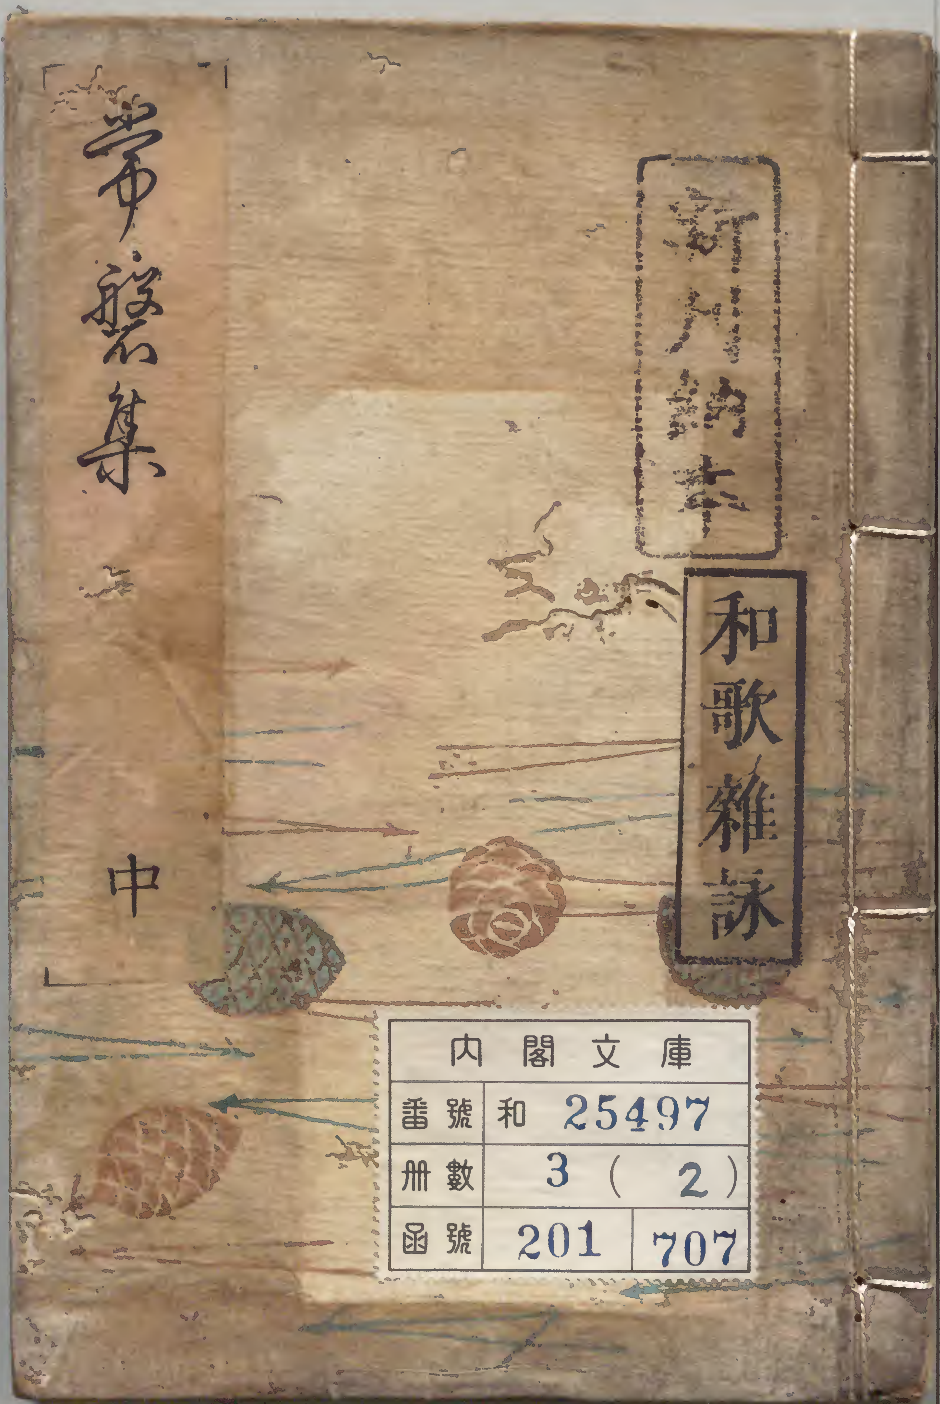 新刋納本
和歌雜詠
常磐集
中
内閣文庫
番號 和 25497
冊數 3 ( 2 )
函號 201 707